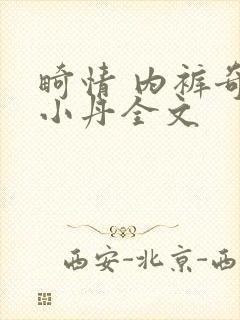 畸情 内裤奇
小丹全文
西安-北京-西